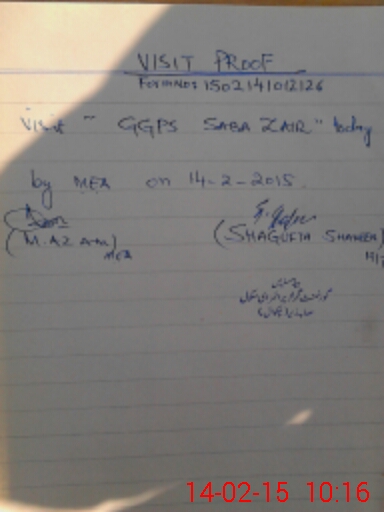 VISIT PROOF
Form No: 1502141012126
Visit " GGPS SABA ZAIR " today
by MEA on 14-2-2015.
(M. AZAM) (SHAGUFTA SHAHEEN)
MEA
14-02-15 10:16